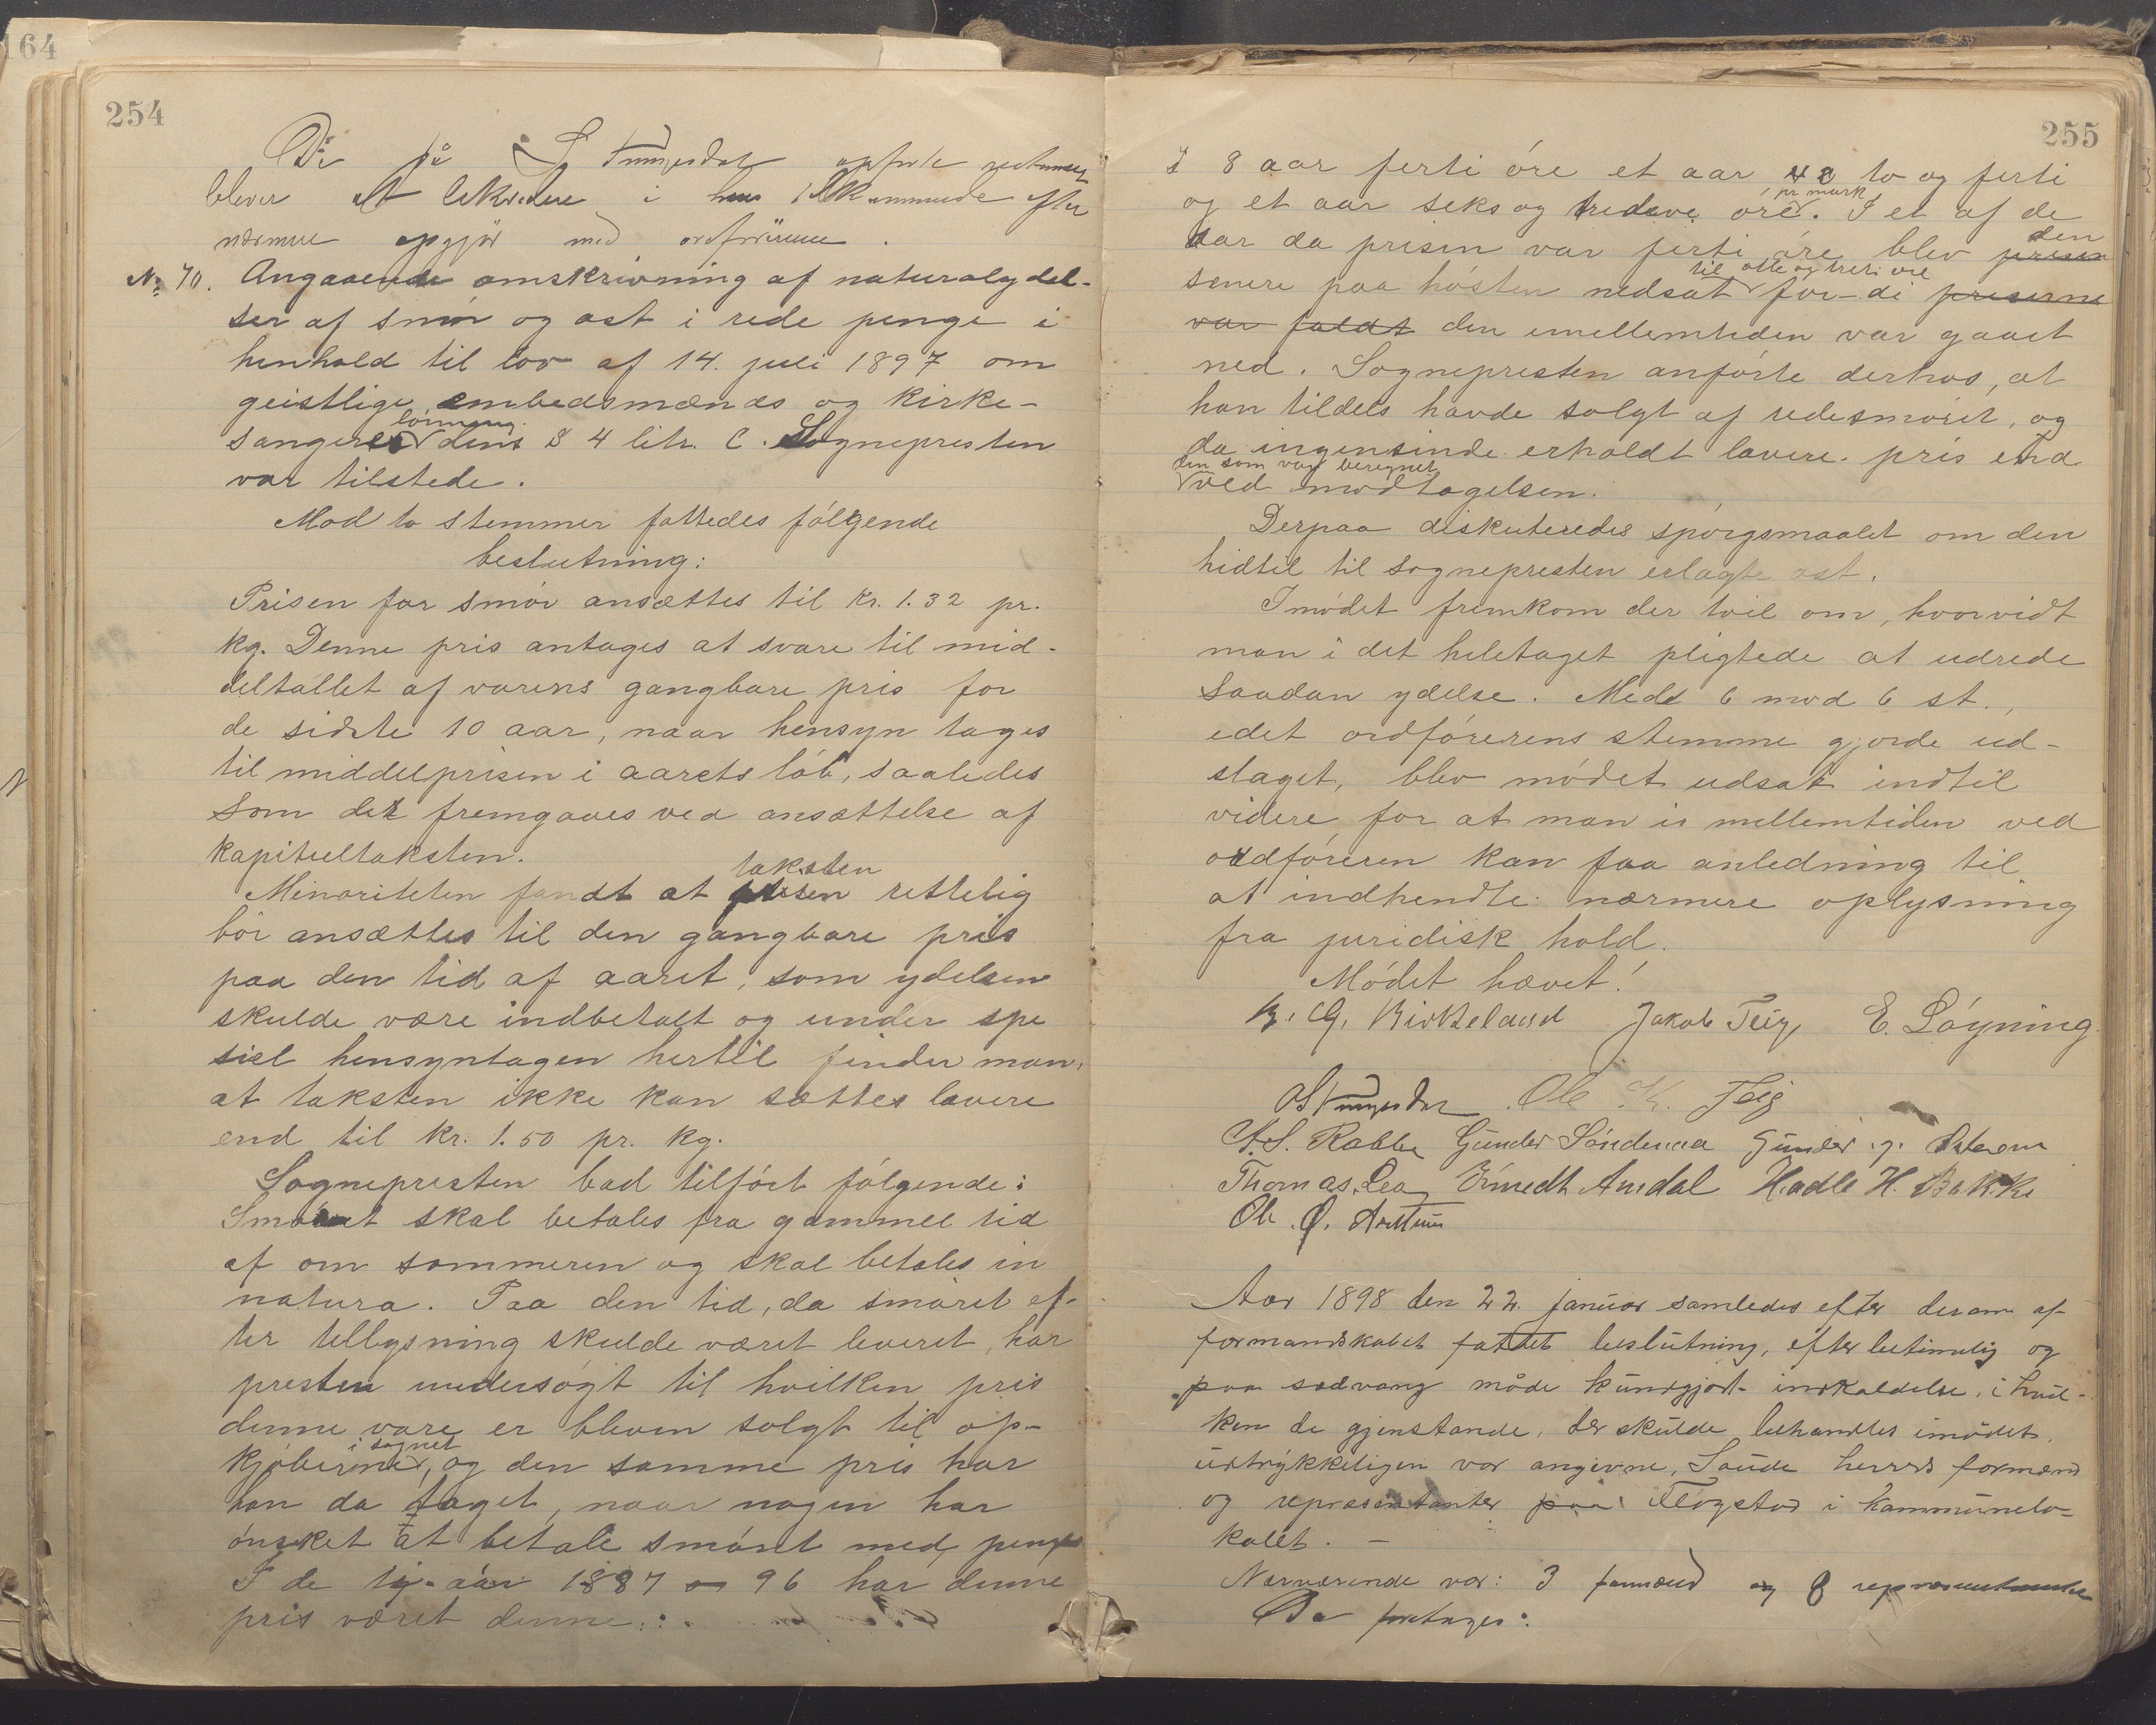 164
254
De på
blever at i efter
nærmere opgjør med ordføreren.
No 70. Angaaende omskrivning af naturalydel-
ser af smør og ost i rede penge i
henhold til lov af 14. juli 1897 om
geistlige embedsmænds og kirke-
lønning
sangeres dens § 4 litr. C. Sognepresten
var tilstede.
Mod to stemmer fattedes følgende
beslutning:
Prisen for smør ansættes til kr. 1.32 pr.
kg. Denne pris antages at svare til mid-
deltallet af varens gangbare pris for
de sidste 10 aar, naar hensyn tages
til middelprisen i aarets løb, saaledes
som det fremgaaes ved ansættelse af
kapiteltaksten.
taksten
Minoriteten fandt at prisen rettelig
bør ansættes til den gangbare pris
paa den tid af aaret, som ydelsen
skulde være indbetalt og under spe
siel hensyntagen hertil finder man,
at taksten ikke kan sættes lavere
end til kr. 1.50 pr. kg.
Sognepresten bad tilført følgende:
Smøret skal betales fra gammel tid
af om sommeren og skal betales in
natura. Paa den tid, da smøret ef-
ter tillysning skulde været leveret, har
presten undersøgt til hvilken pris
denne vare er bleven solgt til op-
i sognet
kjøberne, og den samme pris har
han da taget, naar nogen har
ønsket at betale smøret med penge
I de ti aar 1887 96 har denne
pris været denne:
255
I 8 aar ferti øre et aar to og ferti
pr mark
og et aar seks og tredeve øre. I et af de
aar da prisen var ferti øre blev prisen
den
til otte og treti øre
senere paa høsten nedsat for-di priserne
var faldt den imellemtiden var gaaet
ned. Sognepresten anførte derhos, at
han tildels havde solgt af redesmøret, og
da ingensinde erholdt lavere pris end
den som var beregnet
ved modtagelsen.
Derpaa diskuteredes spørgsmaalet om den
hidtil til sognepresten erlagte ost.
I mødet fremkom der tvil om, hvorvidt
man i det heletaget pligtede at udrede
saadan ydelse. Med 6 mod 6 st.,
idet ordførerens stemme gjorde ud-
slaget, blev mødet udsat indtil
videre, for at man i mellemtiden ved
ordføreren kan faa anledning til
at indhendte nærmere oplysning
fra juridisk hold.
Mødet hævet!
B. G. Birkeland Jakob Teig E. Løyning
Ole K. Teig
A. S. Rabbe Gunder Søndenaa Gunder
Thomas Lea Amdal Hadle H. Bakke
Ole Ø. Artun
Aar 1898 den 22. januar samledes efter derom af
formandskabet fattet beslutning, efter betimelig og
paa sædvang måde kundgjørt indkaldelse, i hvil-
ken de gjenstande, der skulde behandles i mødet,
udtrykkeligen var angivne, Saude herreds formænd
og repræsentanter paa Fløgstad i kommunelo-
kalet. –
Nærværende var: 3 formænd og 8 repræsentanter
Da foretages: